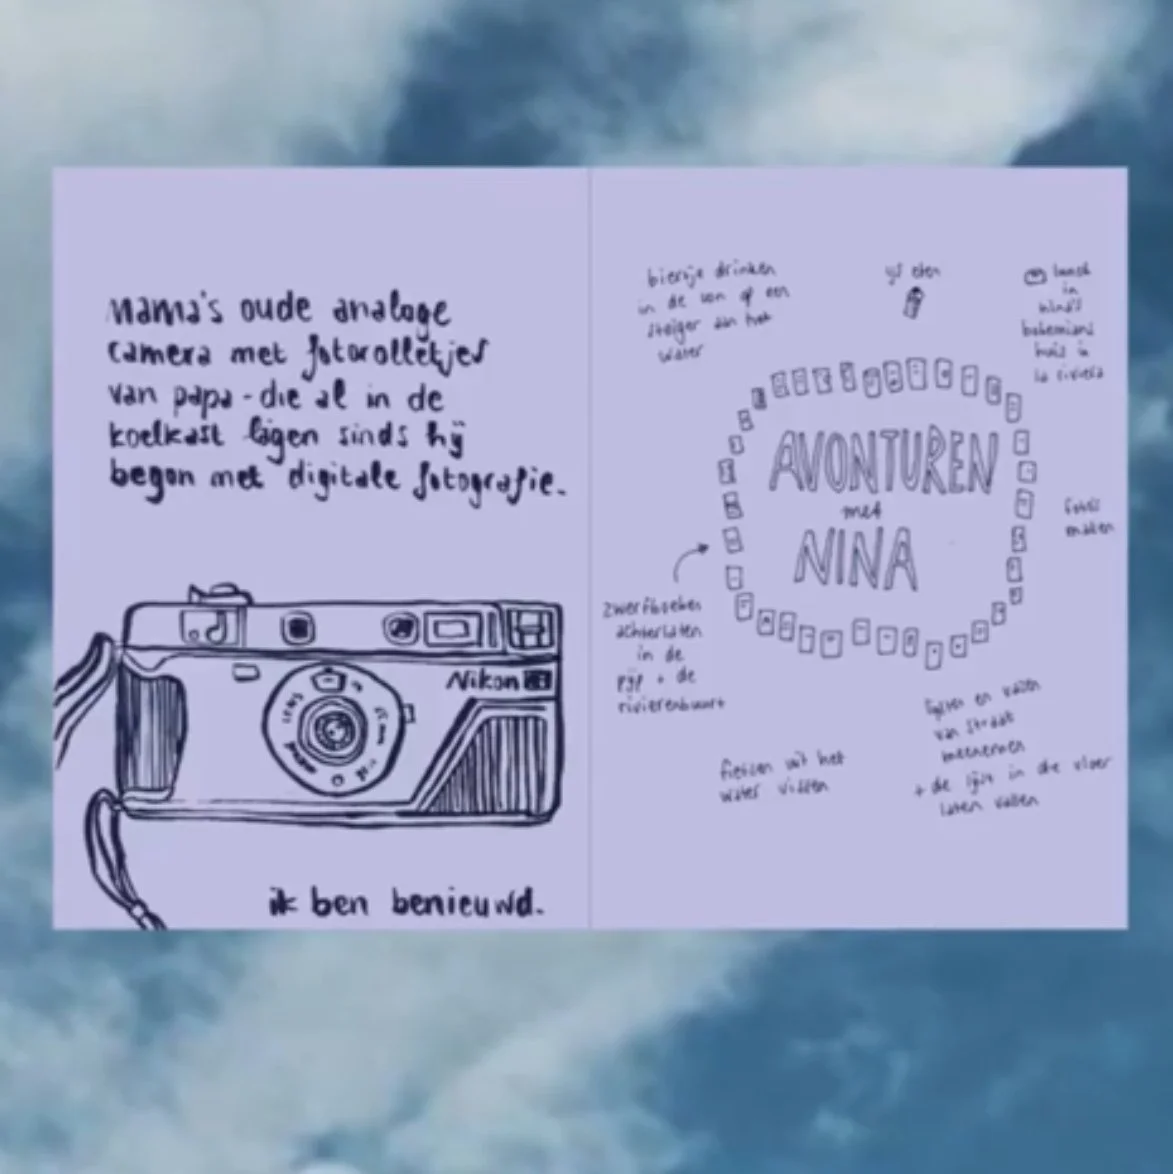 mama's oude analoge
camera met fotorolletjes
van papa - die al in de
koelkast lagen sinds hij
begon met digitale fotografie.
Nikon
ik ben benieuwd.
biertje drinken
in de zon op een
steiger aan het
water
ijs eten
lunch
in
bohemians
huis in
la riviera
AVONTUREN
met
NINA
foto's
maken
zwerfboeken
achterlaten
in de
pijp + de
rivierenbuurt
fietsen uit het
water vissen
lijsten en vazen
van straat
meenemen
+ de lijst in de vloer
laten vallen